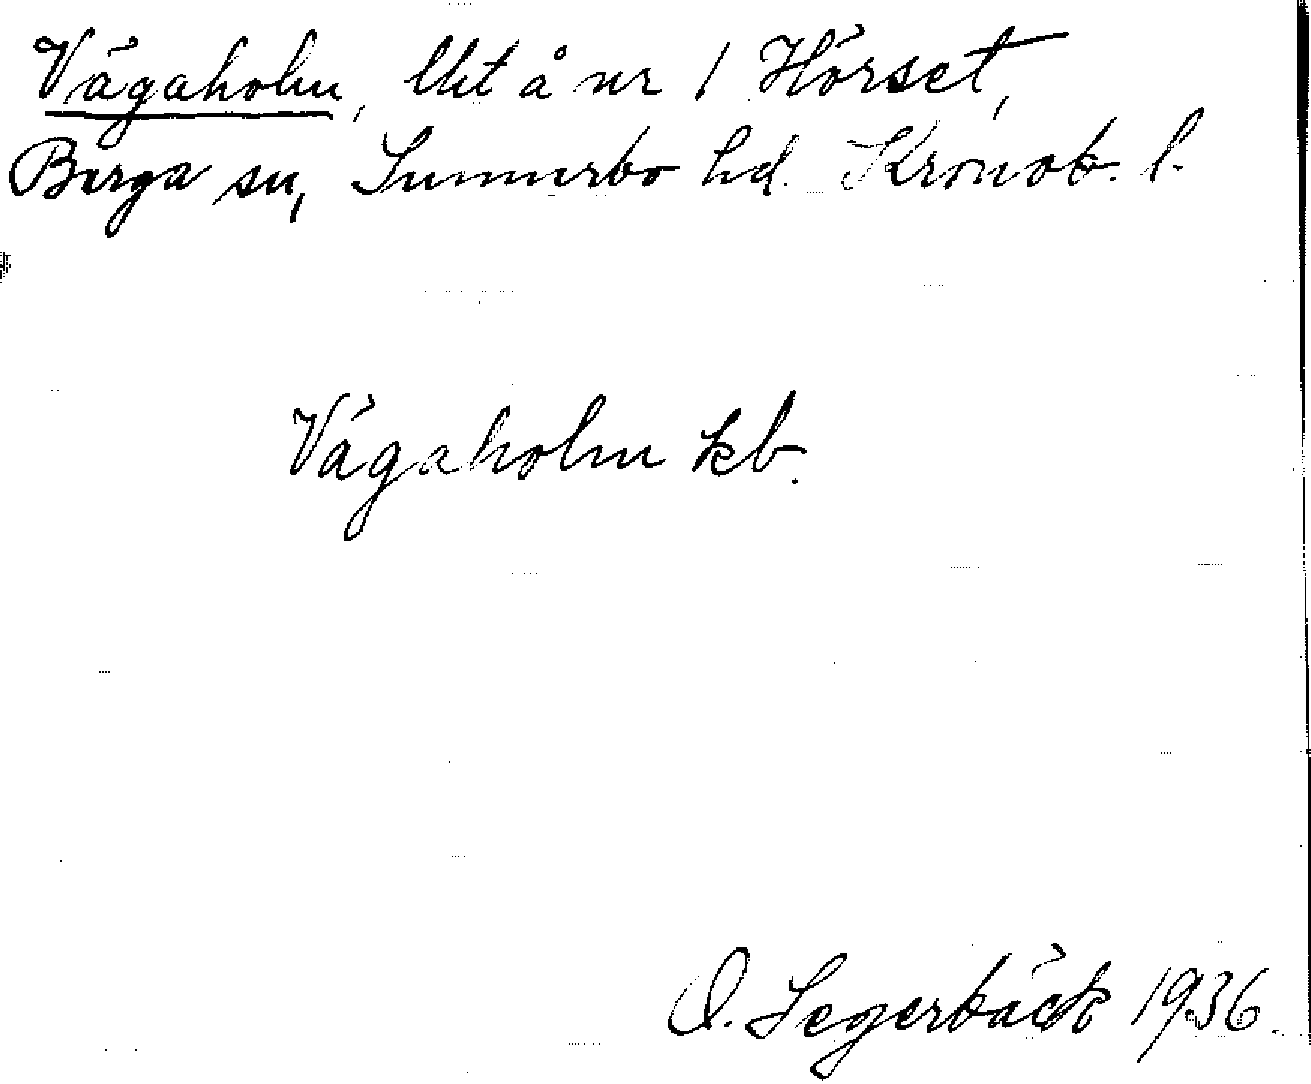 Vägaholm, lht å nr 1 Hörset,
Berga sn, Sunnerbo hd. Kronob. l.
Vägaholm kb.
O. Segerbäck 1936.